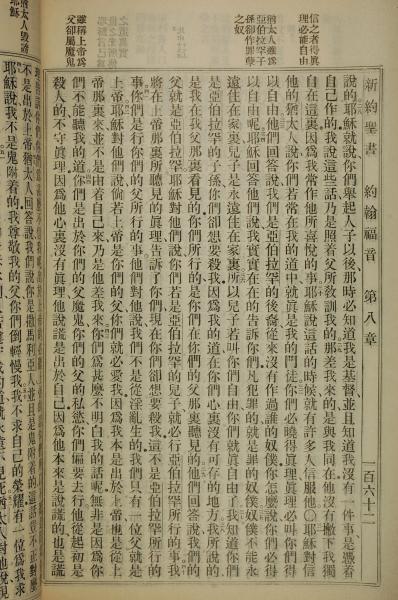 新約聖書　約翰福音　第八章　一百六十二
信之者得真
理必能自由
猶太人雖為
亞伯拉罕子
孫卻作罪孽
之奴
雖稱上帝為
父卻屬魔鬼
說的耶穌就說你們舉起人子以後那時必知道我是基督並且知道我沒有一件事是憑着
自己作的我說這些話乃是照着父所教訓我的那差我來的是與我同在他沒有撇下我獨
自在這裏因為我常作他所喜悅的事耶穌說這話的時候就有許多人信服他〇耶穌對信
他的猶太人說你們若常在我的道中就真是我的門徒你們必曉得真理真理必叫你們得
以自由他們回答他說我們是亞伯拉罕的後裔從來沒有作過誰的奴僕你怎麼說你們必得
以自由呢耶穌回答他們說我實實在在的告訴你們凡犯罪的就是罪的奴僕奴僕不能永
遠住在家裏兒子是永遠住在家裏所以兒子若叫你們自由你們就真自由了我知道你們
是亞伯拉罕的子孫你們卻想要殺我因為我的道在你們心裏沒有可存的地方我所說的
是我在我父那裏看見的你們所行的是你們在你們的父那裏聽見的他們回答說我們的
父就是亞伯拉罕耶穌對他們說你們若是亞伯拉罕的兒子就必行亞伯拉罕所行的事我
將在上帝那裏所聽見的真理告訴了你們現在你們卻想要殺我這不是亞伯拉罕所行的
事你們是行你們的父所行的事他們對他說我們不是從淫亂生的我們只有一位父就是
上帝耶穌對他們說倘若上帝是你們的父你們就必愛我因為我本是出於上帝也是從上
帝那裏來並不是由着自己來乃是他差我來你們為甚麼不明白我的話呢無非是因為你
們不能聽我的道你們是出於你們的父魔鬼你們的父的私慾你們偏要去行他從起初是
殺人的不守真理因為他心裏沒有真理他說謊是出於自己因為他本來是說謊的也是謊